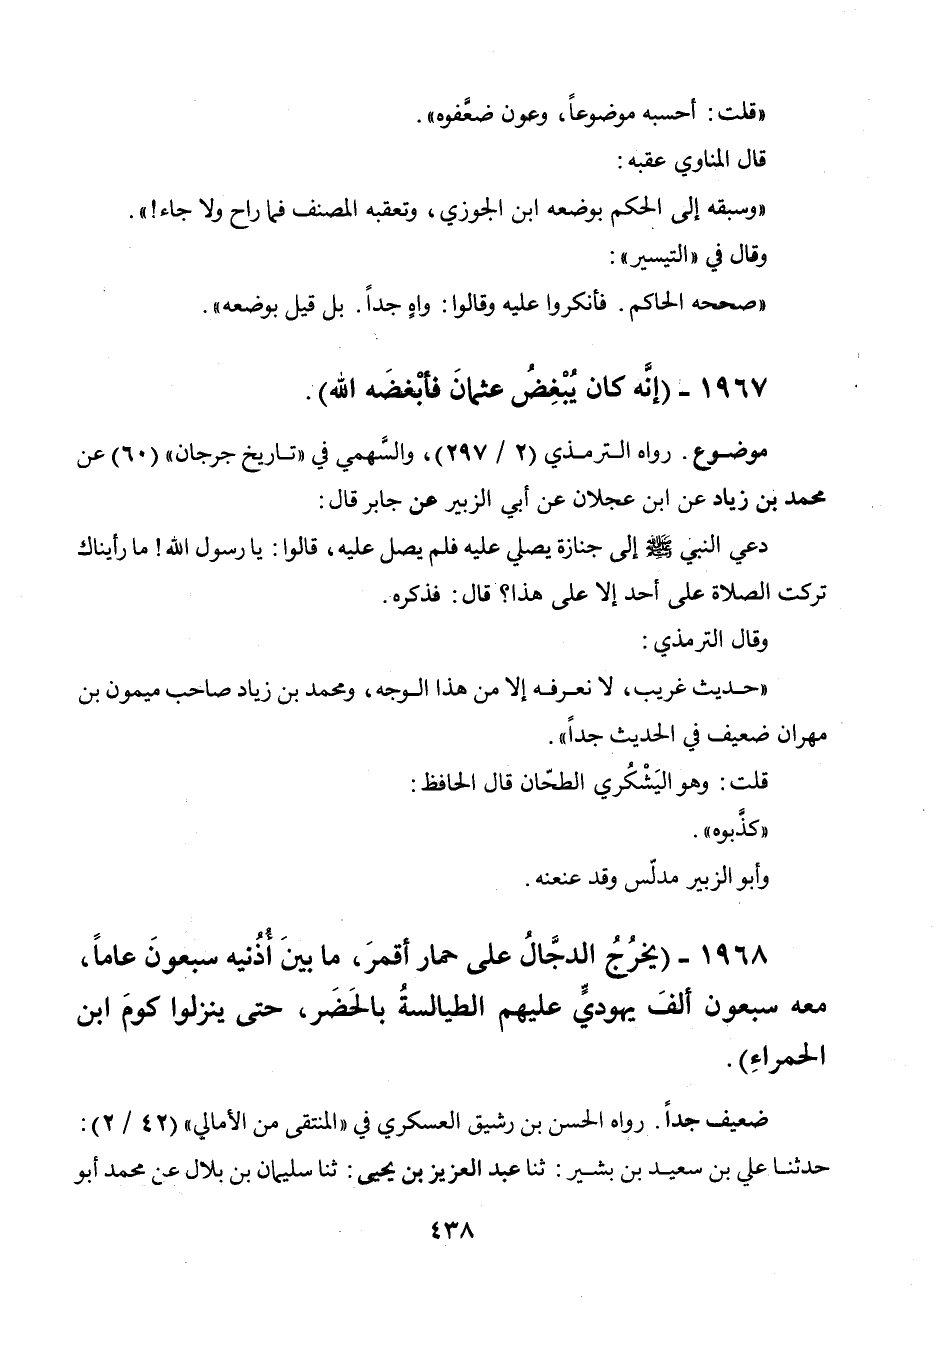 «قلت: أحسبه موضوعاً، وعون ضعَّفوه».
قال المناوي عقبه:
«وسبقه إلى الحكم بوضعه ابن الجوزي، وتعقبه المصنف فما راح ولا جاء!».
وقال في «التيسير»:
«صححه الحاكم. فأنكروا عليه وقالوا: واهٍ جداً. بل قيل بوضعه».
١٩٦٧ - (إنَّه كان يُبْغِضُ عثمانَ فأبْغضَه الله).
موضوع. رواه الترمذي (٢ / ٢٩٧)، والسَّهمي في «تاريخ جرجان» (٦٠) عن
محمد بن زياد عن ابن عجلان عن أبي الزبير عن جابر قال:
دعي النبي ﷺ إلى جنازة يصلي عليه فلم يصل عليه، قالوا: يا رسول الله! ما رأيناك
تركت الصلاة على أحد إلا على هذا؟ قال: فذكره.
وقال الترمذي:
«حديث غريب، لا نعرفه إلا من هذا الوجه، ومحمد بن زياد صاحب ميمون بن
مهران ضعيف في الحديث جداً».
قلت: وهو اليَشْكُري الطحّان قال الحافظ:
«كذَّبوه».
وأبو الزبير مدلّس وقد عنعنه.
١٩٦٨ - (يخرُجُ الدجَّالُ على حمار أقمرَ، ما بينَ أُذُنيه سبعونَ عاماً،
معه سبعون ألفَ يهوديٍّ عليهم الطيالسةُ بالحَضَر، حتى ينزلوا كومَ ابن
الحمراءِ).
ضعيف جداً. رواه الحسن بن رشيق العسكري في «المنتقى من الأمالي» (٤٢ / ٢):
حدثنا علي بن سعيد بن بشير: ثنا عبد العزيز بن يحيى: ثنا سليمان بن بلال عن محمد أبو
٤٣٨